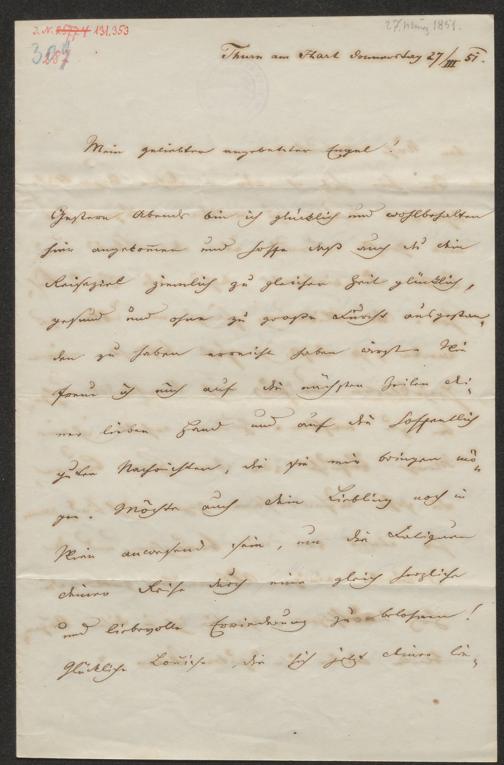 J. N. 131.353
27. März 1851.
307
287
Thurn am Hart Donnerstag 27/III 51.
Mein geliebter angebeteter Engel!
Gestern Abends bin ich glücklich und wohlbehalten
hier angekommen und hoffe daß auch du dein
Reiseziel ziemlich zu gleicher Zeit glücklich,
gesund und ohne zu große Furcht ausgestan-
den zu haben erreicht haben wirst. Wie
freue ich mich auf die nächsten Zeilen dei-
ner lieben Hand und auf die hoffentlich
guten Nachrichten, die sie mir bringen mö-
gen. Möchte auch dein Liebling noch in
Wien anwesend sein, um die Fatiguen
deiner Reise durch eine gleich herzliche
und liebevolle Erwiederung zu belohnen!
Glückliche Louise, die sich jetzt deiner lie-